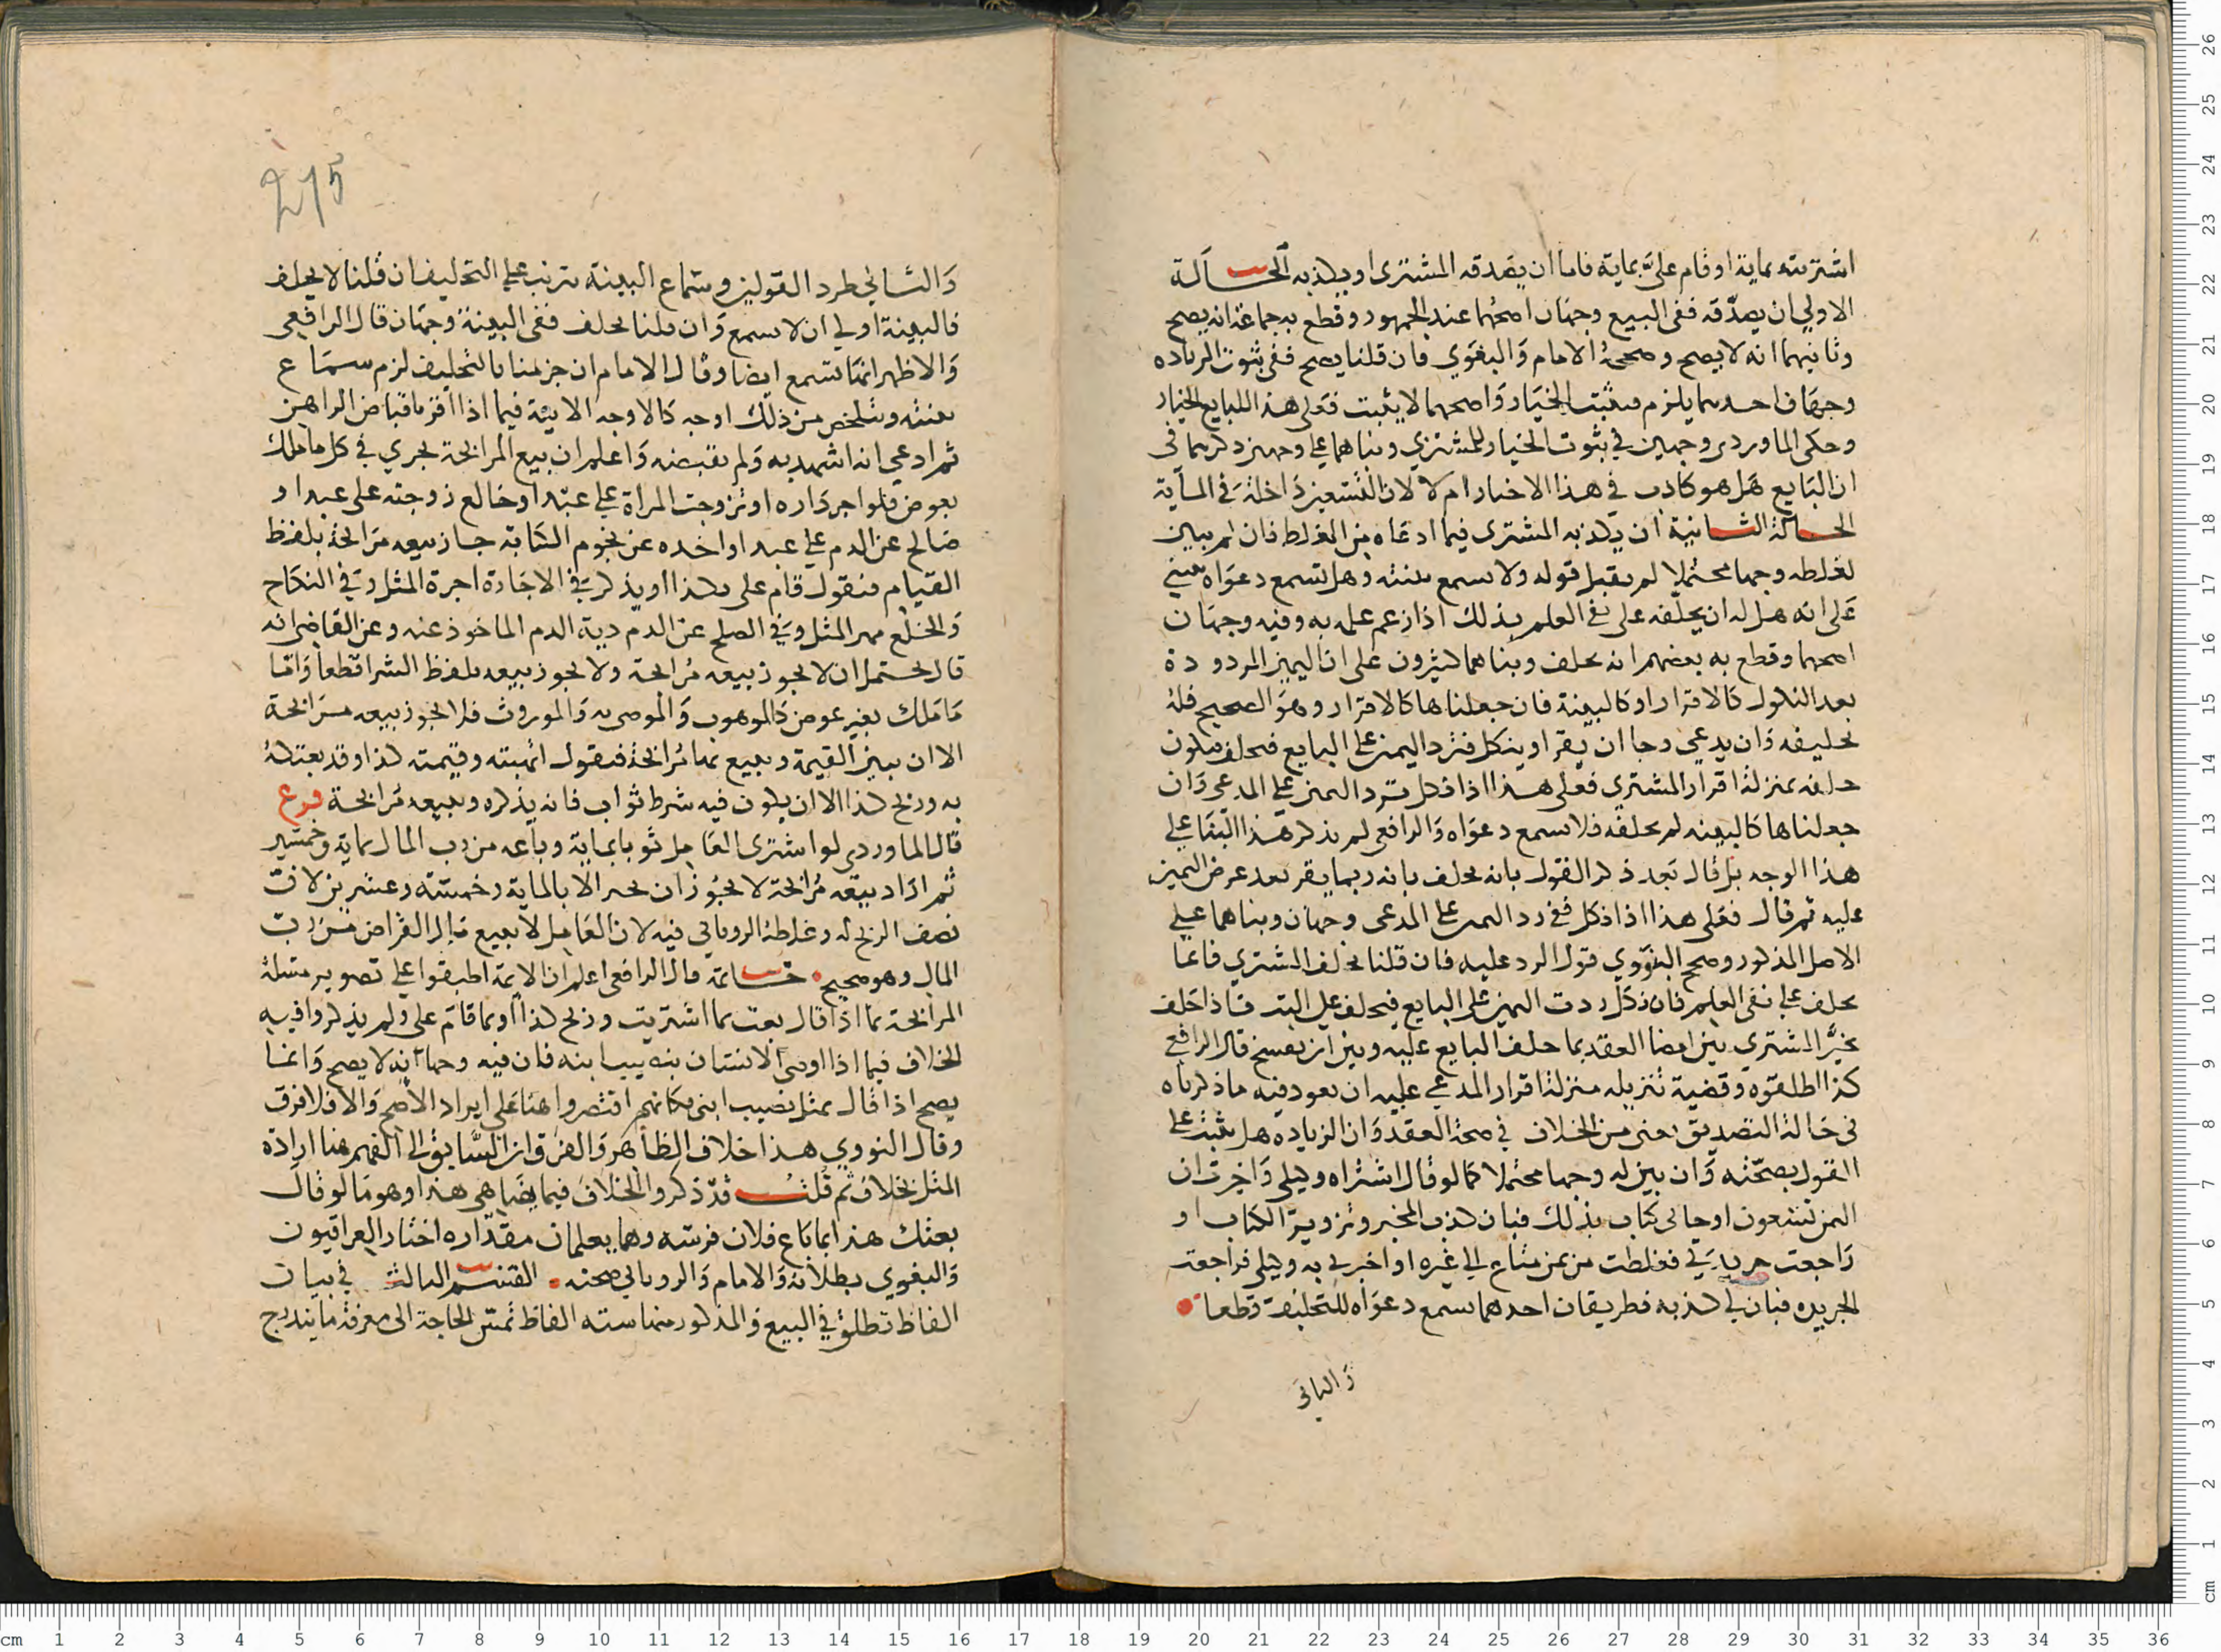 اشتريته بماية او قام عليَّ بماية فاما ان يصدقه المشتري او يكذبه الحالة
الاولي ان يصدّقه ففي البيع وجهان اصحهما عند الجمهور وقطع به جماعة انه يصح
وثانيهما انه لا يصح وصححهُ الامام وَالبغوي فان قلنا يصح ففي ثبوت الزياده
وجهَان احدهما يلزم ويثبت الخيار وَاصحهما لا يثبت فعَلى هذا للبايع الخيار
وحكى الماوردي وجهين في ثبوت الخيار للمشتري وبناهما علي وجهين ذكرهما في
ان البَايع هَل هو كاذب في هذا الاخبار ام لا لان التسعين دَاخلة في الماية
الحالة الثانية ان يكذبه المشتري فيما ادعَاه من الغلط فان لم يبين
لغلطه وجها محتملا لم يقبل قوله ولا تسمع بينته وهل تسمع دعوَاه يعني
عَلى انه هل له ان يحلّفه على نفي العلم بذلك اذا زعم علمه به وفيه وجهَان
اصحهما وقطع به بعضهم انه يحلف وبناهما كثيرون عَلى ان اليمين المردودة
بعد النكول كالاقرار او كالبينة فان جعلناها كالاقرار وهوَ الصحيح فلهُ
تحليفه وَان يدعي رجا ان يقر او ينكل فترد اليمين علي البايع فيحلف فيكون
حلفه بمنزلة اقرار المشتري فعَلى هذا اذا نكل ترد اليمين علي المدعي وَان
جعلناها كالبينه لم يحلفه فلا تسمع دعوَاه وَالرافعي لم يذكر هذا البنا علي
هذا الوجه بل قال بَعد ذكر القول بانه يحلف بانه ربما يقر بعد عرض اليمين
عليه ثم قال فعَلى هذا اذا نكل ففي رد اليمين علي المدعي وجهان وبناهما علي
الاصل المذكور وصحح النووي قول الرد عليه فان قلنا يحلف المشتري فانما
يحلف علي نفي العلم فان نكل ردت اليمين علي البايع فيحلف علي البت فاذا حَلف
تخيَّر المشتري بين امضا العقد بما حلف البايع عليه وبين ان يفسخ قال الرافعي
كذا اطلقوه وقضية تنزيله منزلة اقرار المدعي عليه ان يعود فيه ما ذكرناه
في حَالة التصديق يعني من الخلاف في صحة العقد وَان الزياده هل تثبت علي
القول بصحّته وَان بين له وجها محتملا كما لو قال اشتراه وكيلي وَاخبرت ان
الثمن تسعون او جاني كتاب بذلك فبان كذب المخبر وتزوير الكتاب او
رَاجعت جريدتي فغلطت من ثمن متاع الي غيره او اخبرني به وكيلي فراجعت
الجريده فبان لي كذبه فطريقان احدهما تسمع دعوَاه للتحليف قطعا
وَالثاني
275
وَالثاني طرد القولين وسَماع البينة يترتب علي التحليف ان قلنا لا يحلف
فالبينة اولي ان لا تسمع وَان قلنا يحلف ففي البينة وجهَان قال الرافعي
وَالاظهر انها تسمع ايضا وقال الامام ان جزمنا بالتحليف لزم سمَاع
بينته ويتلخص من ذلك اوجه كالاوجه الاتية فيما اذا اقر باقباض الراهن
ثم ادعي انه اشهد به وَلم يقبضه وَاعلم ان بيع المرابحة يجري في كل ما ملك
بعوض فلو اجر دَاره او تزوجت المراة علي عبد او خالع زوجته على عبد او
صالح عن الدم علي عبد او اخده عن نجوم الكتابة جاز بيعه مرَابحة بلفظ
القيام فيقول قام على بكذا او يذكر في الاجَارة اجرة المثل وَفي النكاح
وَالخلع مهر المثل وَفي الصلح عن الدم دية الدم الماخوذ عنه وعن القاضي انه
قال يحتمل ان لا يجوز بيعه مُرابحة ولا يجوز بيعه بلفظ الشرا قطعا وَامّا
مَا مَلك بغير عوض كَالموهوب وَالموصى به وَالموروث فلا يجوز بيعه مرَابحة
الا ان يبين القيمة ويبيع بها مُرابحة فيقول اتهبته وقيمته كذا وقد بعتكهُ
به وربح كذا الا ان يكون فيه شرط ثواب فانه يذكره ويبيعه مُرابحة فرع
قال الماوردي لو اشترى العَامل ثوبا بماية وباعه من رب المال بماية وخمسين
ثم ارَاد بيعَه مُرابحة لا يجُوز ان يخبر الا بالماية وخمسَة وعشرين لان
نصف الربح له وغلطهُ الروياني فيه لان العَامل لا يبيع مَال القرَاض من رب
المال وهو صحيح خاتمة قال الرافعي اعلم ان الايمة اطبقوا علي تصوير مسَلة
المرابحة بما اذا قال بعت بما اشتريت وربح كذا او بما قامَ علي ولم يذكروا فيه
الخلاف فيما اذا اوصى الانسان بنصيب ابنه فان فيه وجها انه لا يصح وَانما
يصح اذا قال بمثل نصيب ابني فكانهم اقتصروا هنا عَلى ايراد الاصح وَالا فلا فرق
وقال النووي هذا خلاف الظاهر وَالفرق ان السَّابق الي الفهم هنا ارادة
المثل بخلاف ثم قلت قدّ ذكروا الخلاف فيما يضَاهي هذا وهو مَا لو قال
بعتك هذا بما بَاع فلان فرسَه وهما يعلمان مقدّاره اختار العراقيون
وَالبغوي بطلانه وَالامام وَالروياني صحته القسم الثالث في بيان
الفاظ تطلق في البيع وَالمذكور منها سته الفاظ تمسّ الحاجة الى معرفة ما يندرج